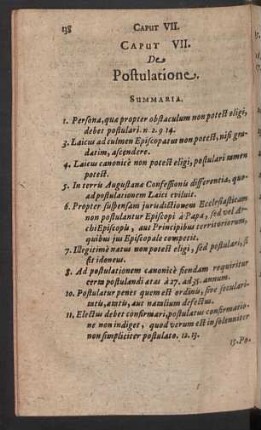 138 CAPUT VII.
CAPUT VII.
De
Postulatione.
SUMMARIA.
1. Persona, quæ propter obstaculum non potest eligi,
debet postulari. n. 2. 9 14.
3. Laicus ad culmen Episcopatus non potest, nisi gra-
datim, ascendere.
4. Laicus canonicè non potest eligi, postulari tamen
potest.
5. In terris Augustanæ Confessionis differentia, quo-
ad postulationem Laici eviluit.
6. Propter suspensam jurisdictionem Ecclesiasticam
non postulantur Episcopi à Papa, sed vel Ar-
chiEpiscopis, aut Principibus territoriorum,
quibus jus Episcopale competit.
7. Illegitimè natus non potest eligi, sed postulari, si
sit idoneus.
8. Ad postulationem canonicè fiendam requiritur
certa postulandi ætas à 27. ad 35. annum.
10. Postulatur penes quem est ordinis, sive secula-
ritatis, ætatis, aut natalium defectus.
11. Electus debet confirmari, postulatus confirmatio-
ne non indiget, quod verum est in solenniter
non simpliciter postulato. 12. 13.
13. Po-